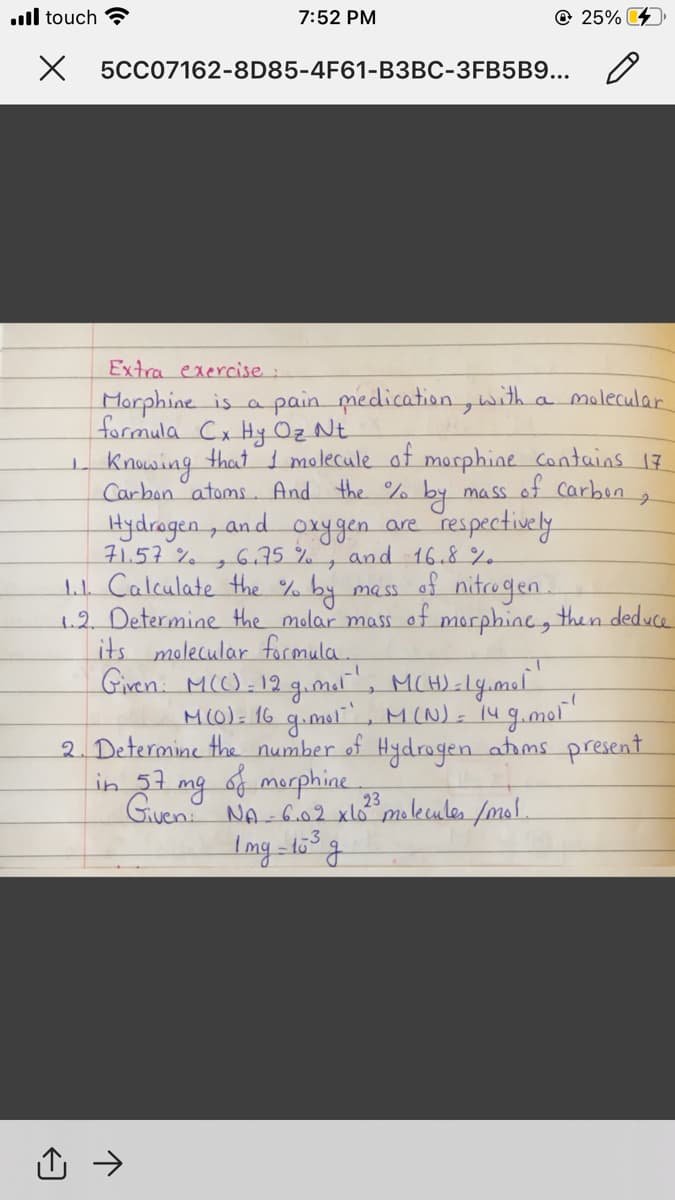 touch 7:52 PM 25%
5CC07162-8D85-4F61-B3BC-3FB5B9...
Extra exercise :
Morphine is a pain medication , with a molecular
formula Cx Hy Oz Nt
1- Knowing that 1 molecule of morphine contains 17
Carbon atoms. And the % by mass of Carbon ,
Hydrogen , and oxygen are respectively
71.57 % , 6.75 % , and 16.8 %.
1.1. Calculate the % by mass of nitrogen.
1.2. Determine the molar mass of morphine, then deduce
its molecular formula.
Given: M(C) = 12 g.mol⁻¹, M(H) = 1g.mol⁻¹
M(O) = 16 g.mol⁻¹, M(N) = 14 g.mol⁻¹
2. Determine the number of Hydrogen atoms present
in 57 mg of morphine.
Given: NA = 6.02 x10²³ molecules /mol.
1mg = 10⁻³ g